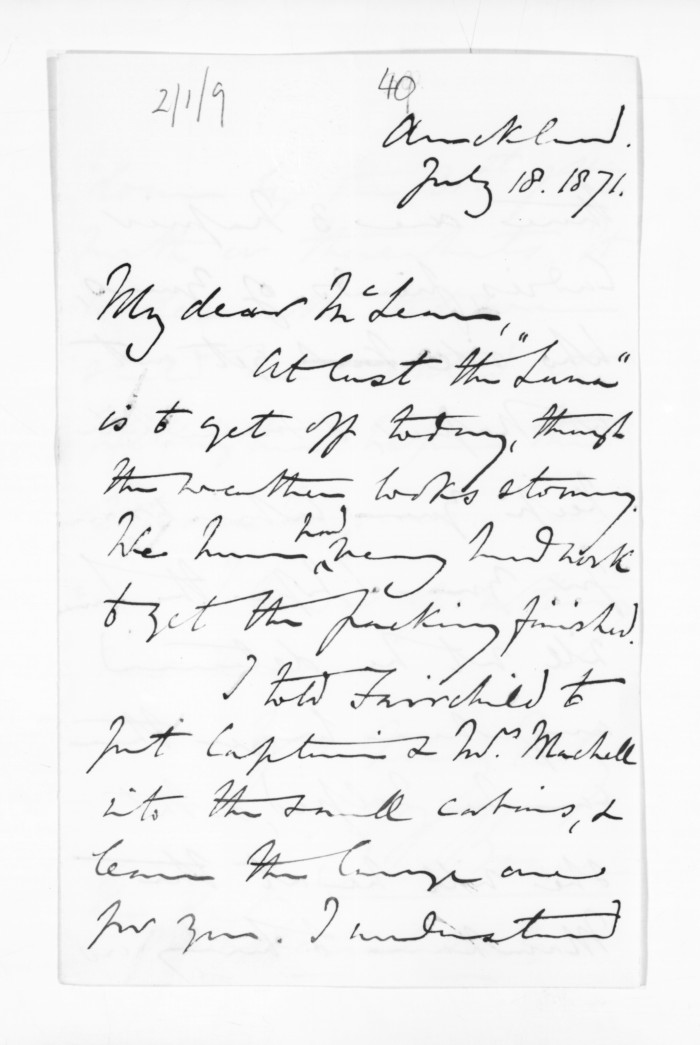 2/1/9
40
Auckland.
July 18. 1871.
My dear McLean,
At last the "Luna"
is to get off today, though
the weather looks stormy.
We have had very hard work
to get the packing finished.
I told Fairchild to
put Captain & Mrs. Machell
into the small cabins, &
leave the large one
for you. I understand